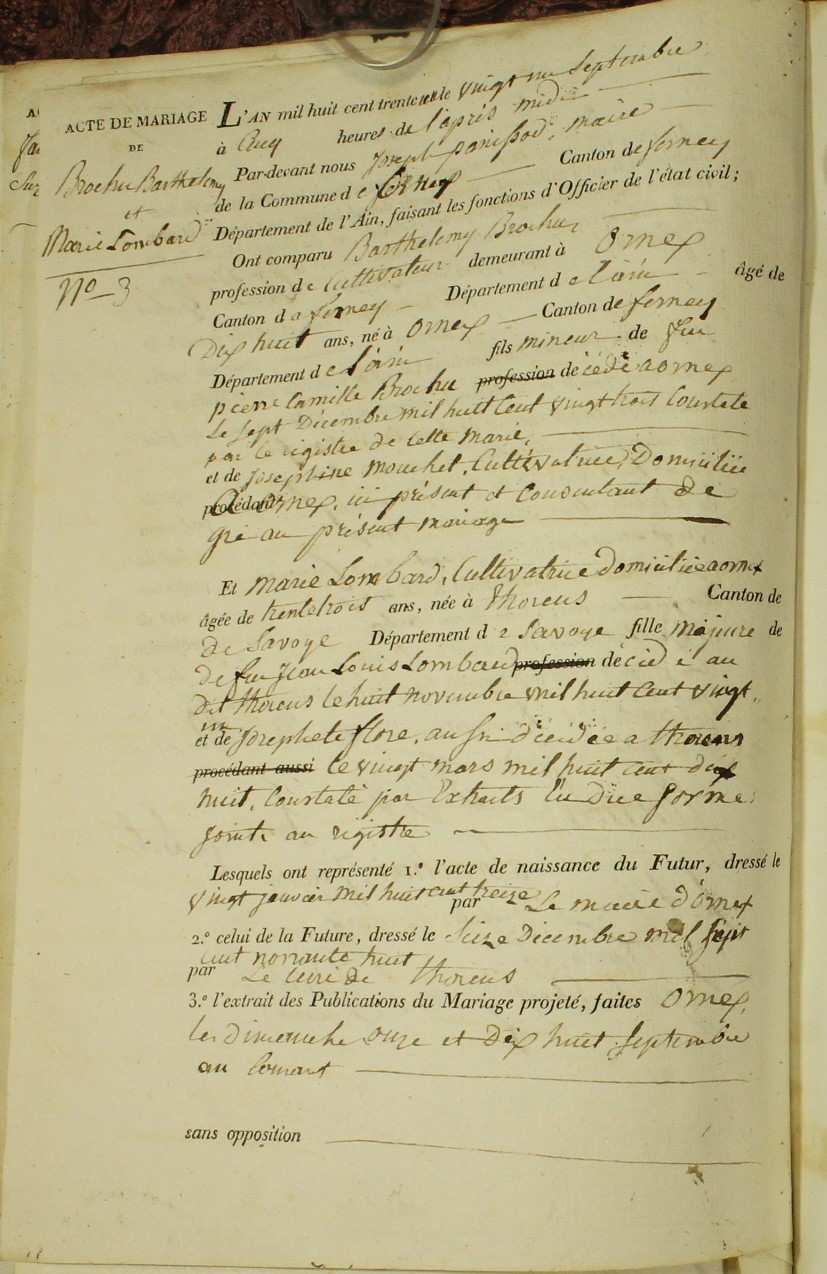 ACTE DE MARIAGE
DE
Brochu Barthelemy
et
Marie Lombard
No 3
L'AN mil huit cent trente le vingt un septembre
à Cinq heures de l'après midi
Par-devant nous Joseph panissod, maire
de la Commune d e ornex Canton de ferney
Département de l'Ain, faisant les fonctions d'Officier de l'état civil;
Ont comparu Barthelemy Brochu
profession de Cultivateur demeurant à Ornex
Canton d e ferney Département d e l'ain âgé de
Dix huit ans, né à Ornex Canton de ferney
Département d e l'ain fils mineur de feu
pierre Camille Brochu profession décédé a ornex
Le sept Décembre mil huit Cent vingt trois Constaté
par le registre de Cette mairie,
et de Josephine mouchet, Cultivatrice, Domiciliée
procédant a Ornex, ici présent et Consentant de
gré au présent mariage
Et marie Lombard, Cultivatrice domiciliée a ornex
âgée de trente trois ans, née à Thorens Canton de
de Savoye Département d e Savoye fille majeure de
de feu Jean Louis Lombard profession décédé au
dit Thorens le huit novembre mil huit Cent vingt
un
et de Josephete flore, aussi décédée a thorens
procédant aussi le vingt mars mil huit cent dix
huit, Constaté par Extraits En due forme
joints au registre
Lesquels ont représenté 1.º l'acte de naissance du Futur, dressé le
vingt janvier mil huit cent treize par Le maire d'Ornex
2.º celui de la Future, dressé le Seize Décembre mil sept
cent nonante huit
par Le Curé de Thorens
3.º l'extrait des Publications du Mariage projeté, faites Ornex,
les Dimanche onze et Dix huit septembre
au Courant
sans opposition